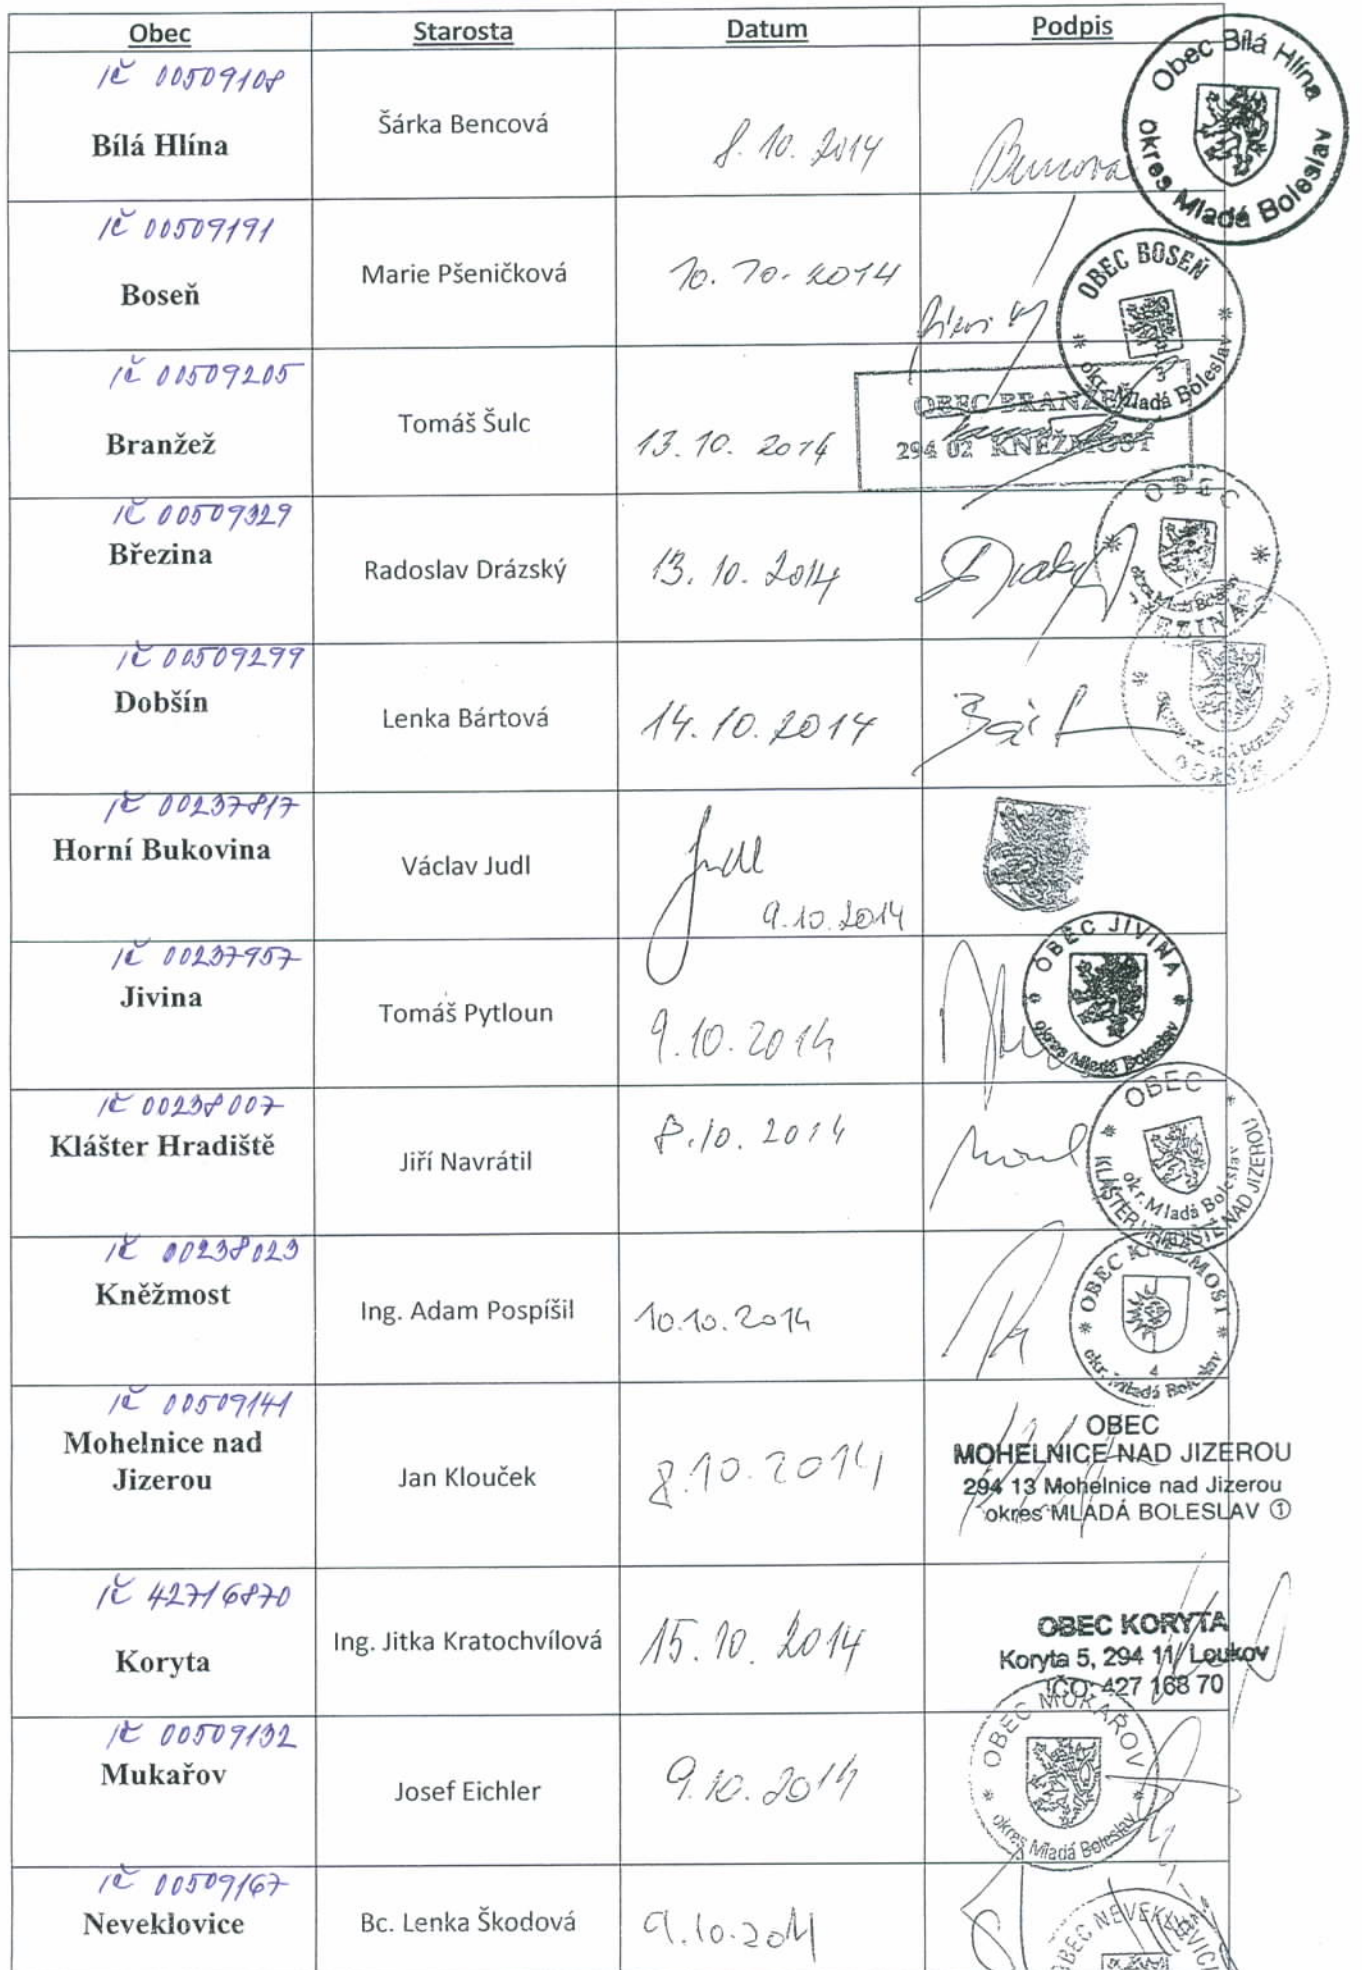 Obec Starosta Datum Podpis
IČ 00509108
Bílá Hlína
Šárka Bencová
8. 10. 2014
Bencová
Obec Bílá Hlína
okres Mladá Boleslav
IČ 00509191
Boseň
Marie Pšeničková
10. 10. 2014
OBEC BOSEŇ
okr. Mladá Boleslav
3
IČ 00509205
Branžež
Tomáš Šulc
13. 10. 2014
OBEC BRANŽEŽ
294 02 KNĚŽMOST
IČ 00509329
Březina
Radoslav Drázský
13. 10. 2014
OBEC
IČ 00509299
Dobšín
Lenka Bártová
14. 10. 2014
MLADÁ BOLESLAV
DOBŠÍN
IČ 00237817
Horní Bukovina
Václav Judl
Judl
9.10.2014
IČ 00237957
Jivina
Tomáš Pytloun
9.10.2014
OBEC JIVINA
okres Mladá Boleslav
IČ 00238007
Klášter Hradiště
Jiří Navrátil
8.10. 2014
OBEC
KLÁŠTER HRADIŠTĚ NAD JIZEROU
okr. Mladá Boleslav
IČ 00238023
Kněžmost
Ing. Adam Pospíšil
10.10.2014
OBEC KNĚŽMOST
okr. Mladá Boleslav
4
IČ 00509141
Mohelnice nad
Jizerou
Jan Klouček
8.10.2014
OBEC
MOHELNICE NAD JIZEROU
294 13 Mohelnice nad Jizerou
okres MLADÁ BOLESLAV ①
IČ 42716870
Koryta
Ing. Jitka Kratochvílová
15. 10. 2014
OBEC KORYTA
Koryta 5, 294 11 Loukov
IČO: 427 168 70
IČ 00509132
Mukařov
Josef Eichler
9.10.2014
OBEC MUKAŘOV
okres Mladá Boleslav
IČ 00509167
Neveklovice
Bc. Lenka Škodová
9.10.2014
OBEC NEVEKLOVICE